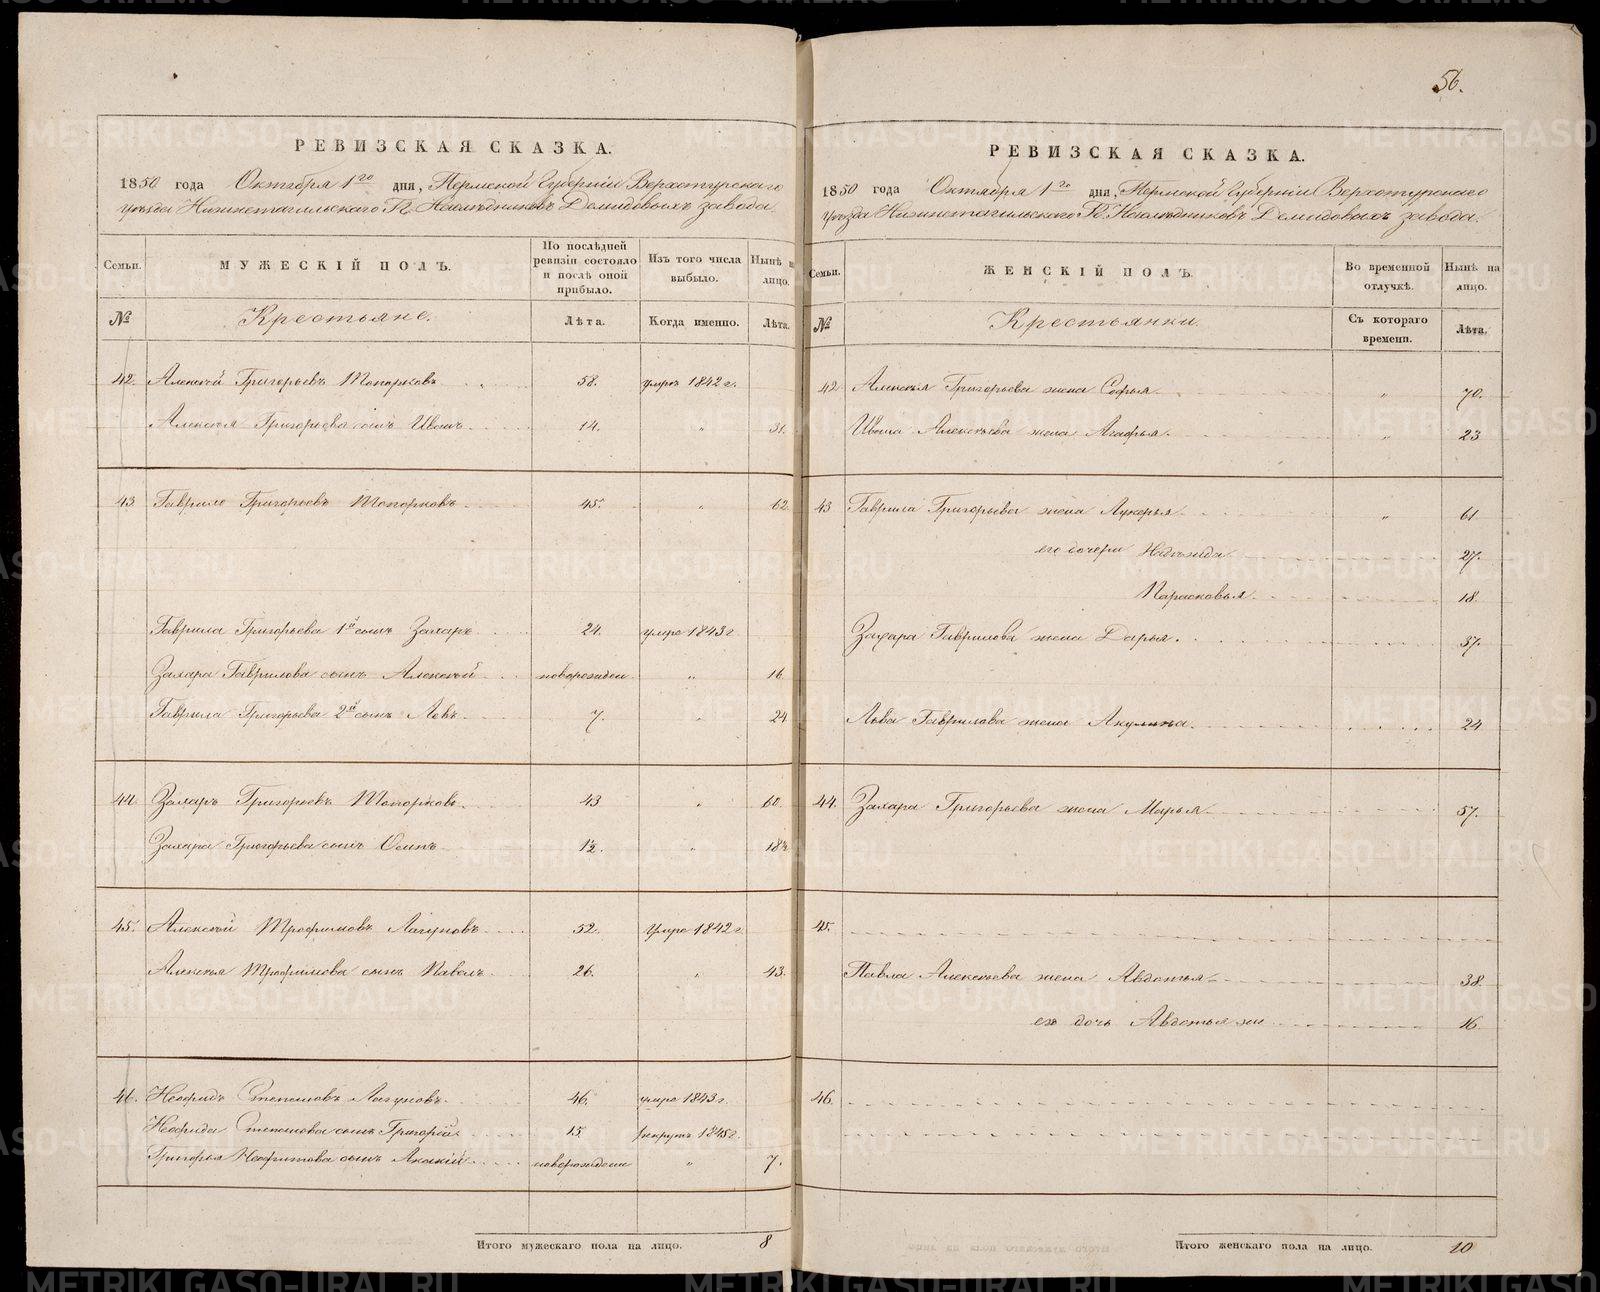 РЕВИЗСКАЯ СКАЗКА.
1850 года Октября 1го дня, Пермской Губерніи Верхотурскаго
уѣзда Нижнетагильскаго Гг. Наслѣдниковъ Демидовыхъ завода.
Семьи. МУЖЕСКІЙ ПОЛЪ. По послѣдней ревизіи состояло и послѣ оной прибыло. Изъ того числа выбыло. Нынѣ на лицо.
№ Крестьяне. Лѣта. Когда именно. Лѣта.
42. Алексѣй Григорьевъ Топорковъ 58. умро 1842 г.
Алексѣя Григорьева сынъ Иванъ 14. " 31.
43 Гаврило Григорьевъ Топорковъ 45. " 62.
Гаврила Григорьева 1й сынъ Захаръ 24. умре 1843 г
Захара Гаврилова сынъ Алексѣй новорожден " 16
Гаврила Григорьева 2й сынъ Левъ 7. " 24
44. Захаръ Григорьевъ Топорковъ. 43 " 60.
Захара Григорьева сынъ Осипъ 1½. " 18½
45. Алексѣй Трофимовъ Лагуновъ 52. Умре 1842 г
Алексѣя Трофимова сынъ Павелъ 26. " 43.
46. Неофидъ Степановъ Лагуновъ. 46. умре 1843 г.
Неофида Степанова сынъ Григорій 15. рекрутъ 1845 г.
Григорья Неофитова сынъ Акакій новорожденн " 7.
Итого мужескаго пола на лицо. 8
56.
РЕВИЗСКАЯ СКАЗКА.
1850 года Октября 1го дня, Пермской Губерніи Верхотурскаго
уѣзда Нижнетагильскаго Гг. Наслѣдниковъ Демидовыхъ завода.
Семьи. ЖЕНСКІЙ ПОЛЪ. Во временной отлучкѣ. Нынѣ на лицо.
№ Крестьянки. Съ котораго времени. Лѣта.
42 Алексѣя Григорьева жена Софья " 70.
Ивана Алексѣева жена Агафья. " 23
43 Гаврила Григорьева жена Лукерья " 61
его дочери Надежда 27.
Парасковья 18.
Захара Гаврилова жена Дарья. 37.
Льва Гаврилова жена Акулина 24
44. Захара Григорьева жена Марья 57.
45.
Павла Алексѣева жена Авдотья 38.
ея дочь Авдотья же 16
46.
Итого женскаго пола на лицо. 10
METRIKI.GASO-URAL.RU